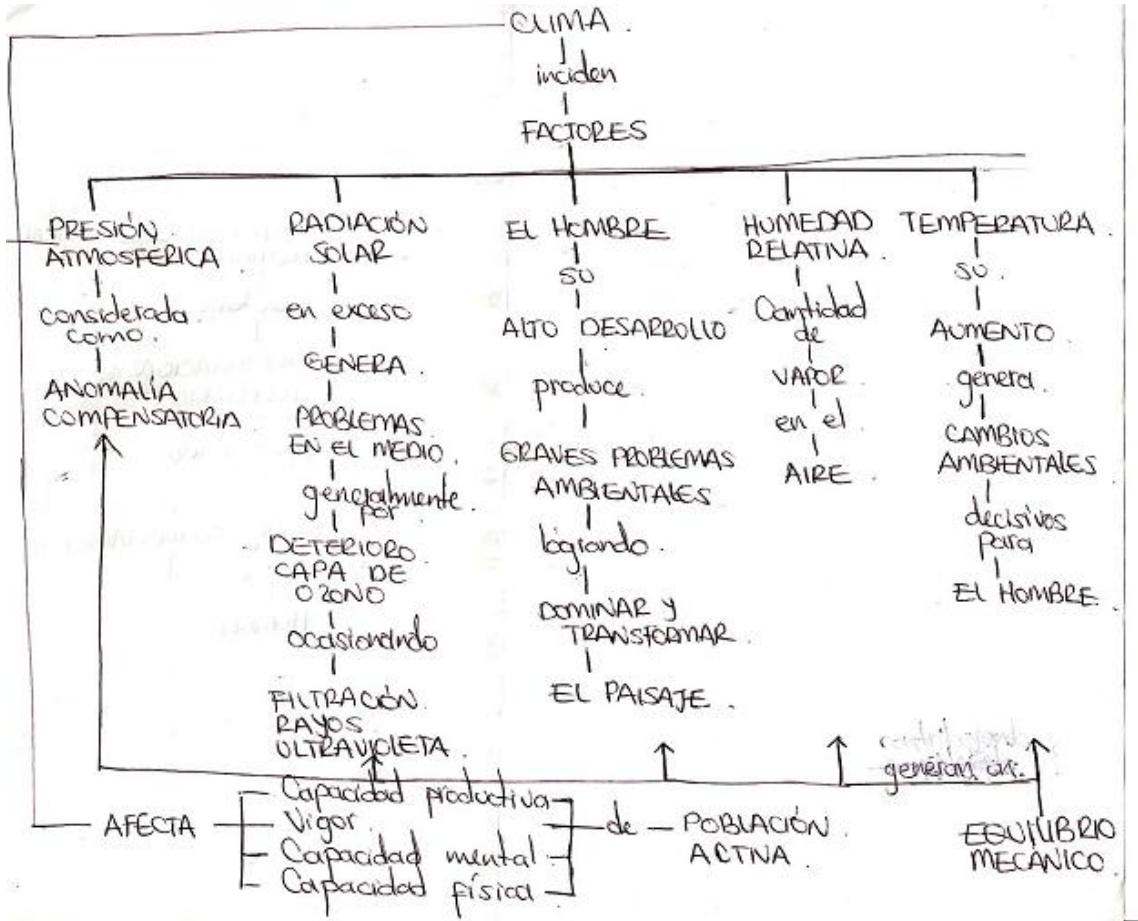 CLIMA.
inciden
FACTORES
PRESIÓN
ATMOSFERICA
considerada
como.
ANOMALÍA
COMPENSATORIA
RADIACIÓN
SOLAR
en exceso
GENERA.
PROBLEMAS
EN EL MEDIO.
generalmente
por
DETERIORO
CAPA DE
OZONO
ocasionando
FILTRACIÓN
RAYOS
ULTRAVIOLETA.
EL HOMBRE
SU
ALTO DESARROLLO
produce
GRAVES PROBLEMAS
AMBIENTALES
logrando.
DOMINAR Y
TRANSFORMAR.
EL PAISAJE.
HUMEDAD
RELATIVA.
Cantidad
de
VAPOR
en el
AIRE.
TEMPERATURA.
SU.
AUMENTO.
genera.
CAMBIOS
AMBIENTALES
decisivos
para
EL HOMBRE.
generan un.
EQUILIBRIO
MECÁNICO.
AFECTA
Capacidad productiva
Vigor.
Capacidad mental
Capacidad física
de
POBLACIÓN.
ACTIVA.